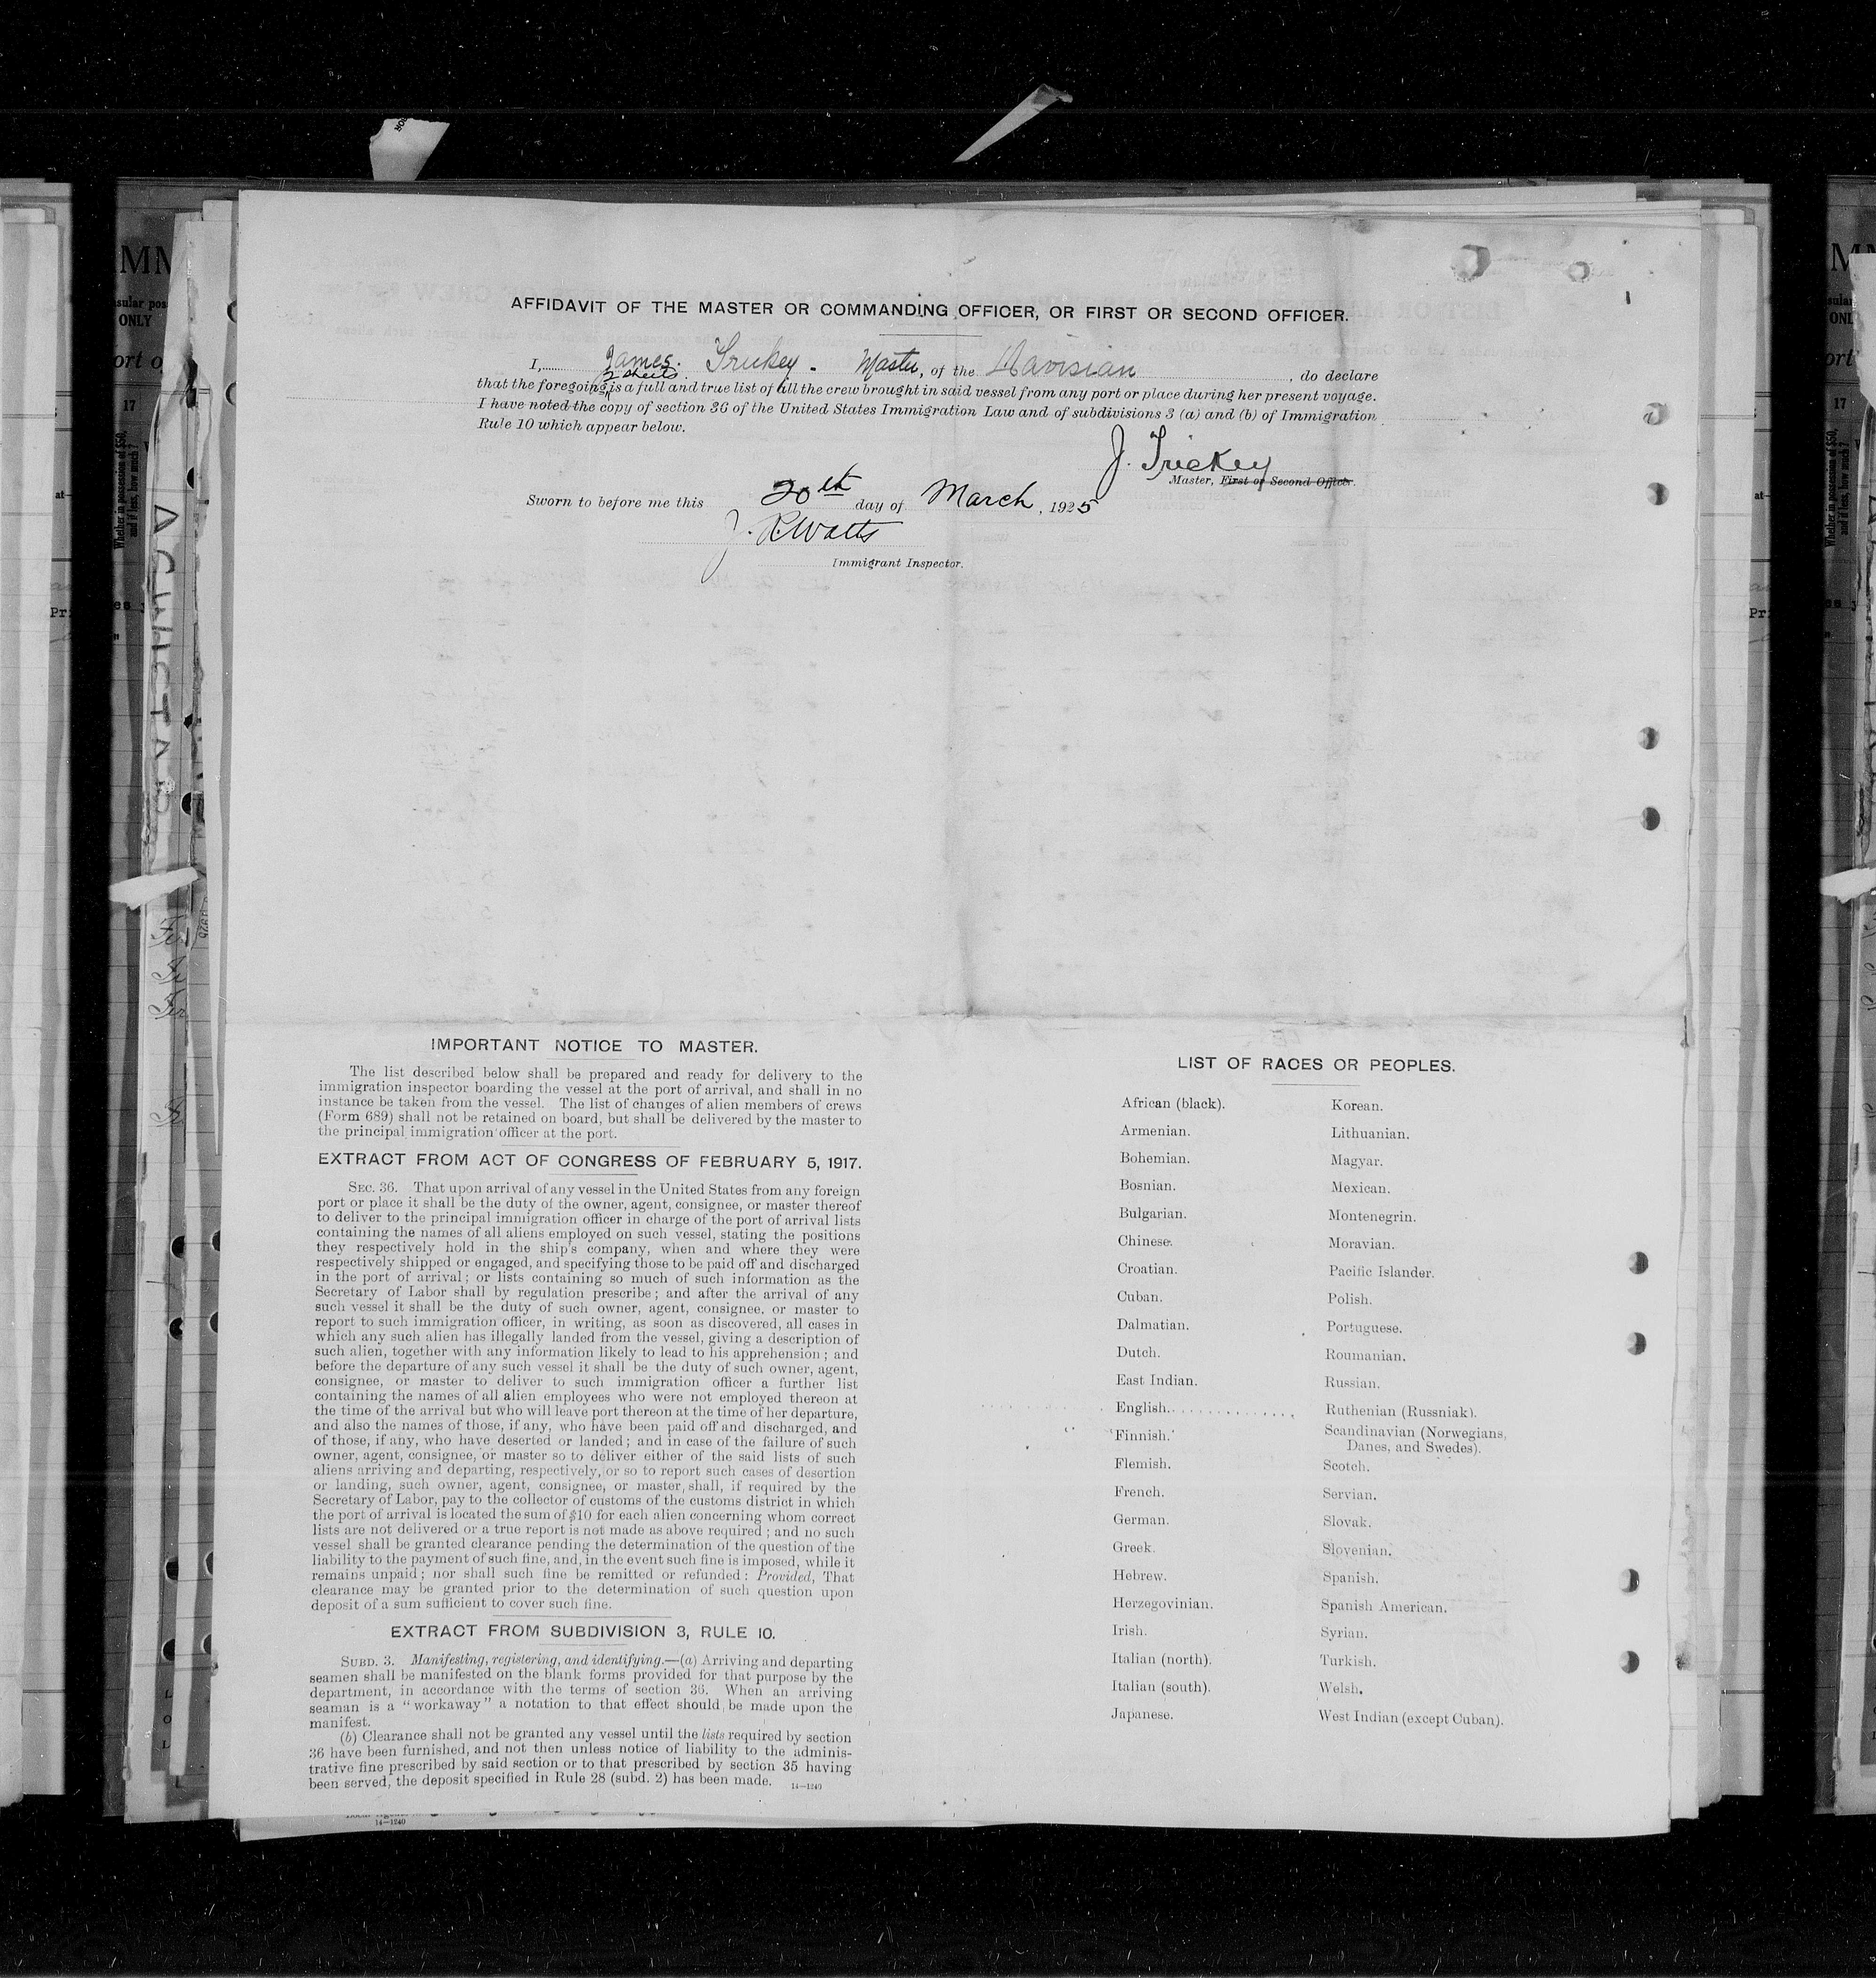 AFFIDAVIT OF THE MASTER OR COMMANDING OFFICER, OR FIRST OR SECOND OFFICER.
I, James. Trickey - Master, of the Davisian, do declare
2 sheets
that the foregoing is a full and true list of all the crew brought in said vessel from any port or place during her present voyage.
I have noted the copy of section 36 of the United States Immigration Law and of subdivisions 3 (a) and (b) of Immigration
Rule 10 which appear below.
J. Trickey
Master, First or Second Officer.
Sworn to before me this 20th day of March, 1925
J. R Watts
Immigrant Inspector.
IMPORTANT NOTICE TO MASTER.
The list described below shall be prepared and ready for delivery to the
immigration inspector boarding the vessel at the port of arrival, and shall in no
instance be taken from the vessel. The list of changes of alien members of crews
(Form 689) shall not be retained on board, but shall be delivered by the master to
the principal immigration officer at the port.
EXTRACT FROM ACT OF CONGRESS OF FEBRUARY 5, 1917.
SEC. 36. That upon arrival of any vessel in the United States from any foreign
port or place it shall be the duty of the owner, agent, consignee, or master thereof
to deliver to the principal immigration officer in charge of the port of arrival lists
containing the names of all aliens employed on such vessel, stating the positions
they respectively hold in the ship's company, when and where they were
respectively shipped or engaged, and specifying those to be paid off and discharged
in the port of arrival; or lists containing so much of such information as the
Secretary of Labor shall by regulation prescribe; and after the arrival of any
such vessel it shall be the duty of such owner, agent, consignee, or master to
report to such immigration officer, in writing, as soon as discovered, all cases in
which any such alien has illegally landed from the vessel, giving a description of
such alien, together with any information likely to lead to his apprehension; and
before the departure of any such vessel it shall be the duty of such owner, agent,
consignee, or master to deliver to such immigration officer a further list
containing the names of all alien employees who were not employed thereon at
the time of the arrival but who will leave port thereon at the time of her departure,
and also the names of those, if any, who have been paid off and discharged, and
of those, if any, who have deserted or landed; and in case of the failure of such
owner, agent, consignee, or master so to deliver either of the said lists of such
aliens arriving and departing, respectively, or so to report such cases of desertion
or landing, such owner, agent, consignee, or master, shall, if required by the
Secretary of Labor, pay to the collector of customs of the customs district in which
the port of arrival is located the sum of $10 for each alien concerning whom correct
lists are not delivered or a true report is not made as above required; and no such
vessel shall be granted clearance pending the determination of the question of the
liability to the payment of such fine, and, in the event such fine is imposed, while it
remains unpaid; nor shall such fine be remitted or refunded: Provided, That
clearance may be granted prior to the determination of such question upon
deposit of a sum sufficient to cover such fine.
EXTRACT FROM SUBDIVISION 3, RULE 10.
SUBD. 3. Manifesting, registering, and identifying.—(a) Arriving and departing
seamen shall be manifested on the blank forms provided for that purpose by the
department, in accordance with the terms of section 36. When an arriving
seaman is a "workaway" a notation to that effect should be made upon the
manifest.
(b) Clearance shall not be granted any vessel until the lists required by section
36 have been furnished, and not then unless notice of liability to the adminis-
trative fine prescribed by said section or to that prescribed by section 35 having
been served, the deposit specified in Rule 28 (subd. 2) has been made. 14—1240
14—1240
LIST OF RACES OR PEOPLES.
African (black).
Armenian.
Bohemian.
Bosnian.
Bulgarian.
Chinese.
Croatian.
Cuban.
Dalmatian.
Dutch.
East Indian.
English.
Finnish.
Flemish.
French.
German.
Greek.
Hebrew.
Herzegovinian.
Irish.
Italian (north).
Italian (south).
Japanese.
Korean.
Lithuanian.
Magyar.
Mexican.
Montenegrin.
Moravian.
Pacific Islander.
Polish.
Portuguese.
Roumanian.
Russian.
Ruthenian (Russniak).
Scandinavian (Norwegians,
Danes, and Swedes).
Scotch.
Servian.
Slovak.
Slovenian.
Spanish.
Spanish American.
Syrian.
Turkish.
Welsh.
West Indian (except Cuban).